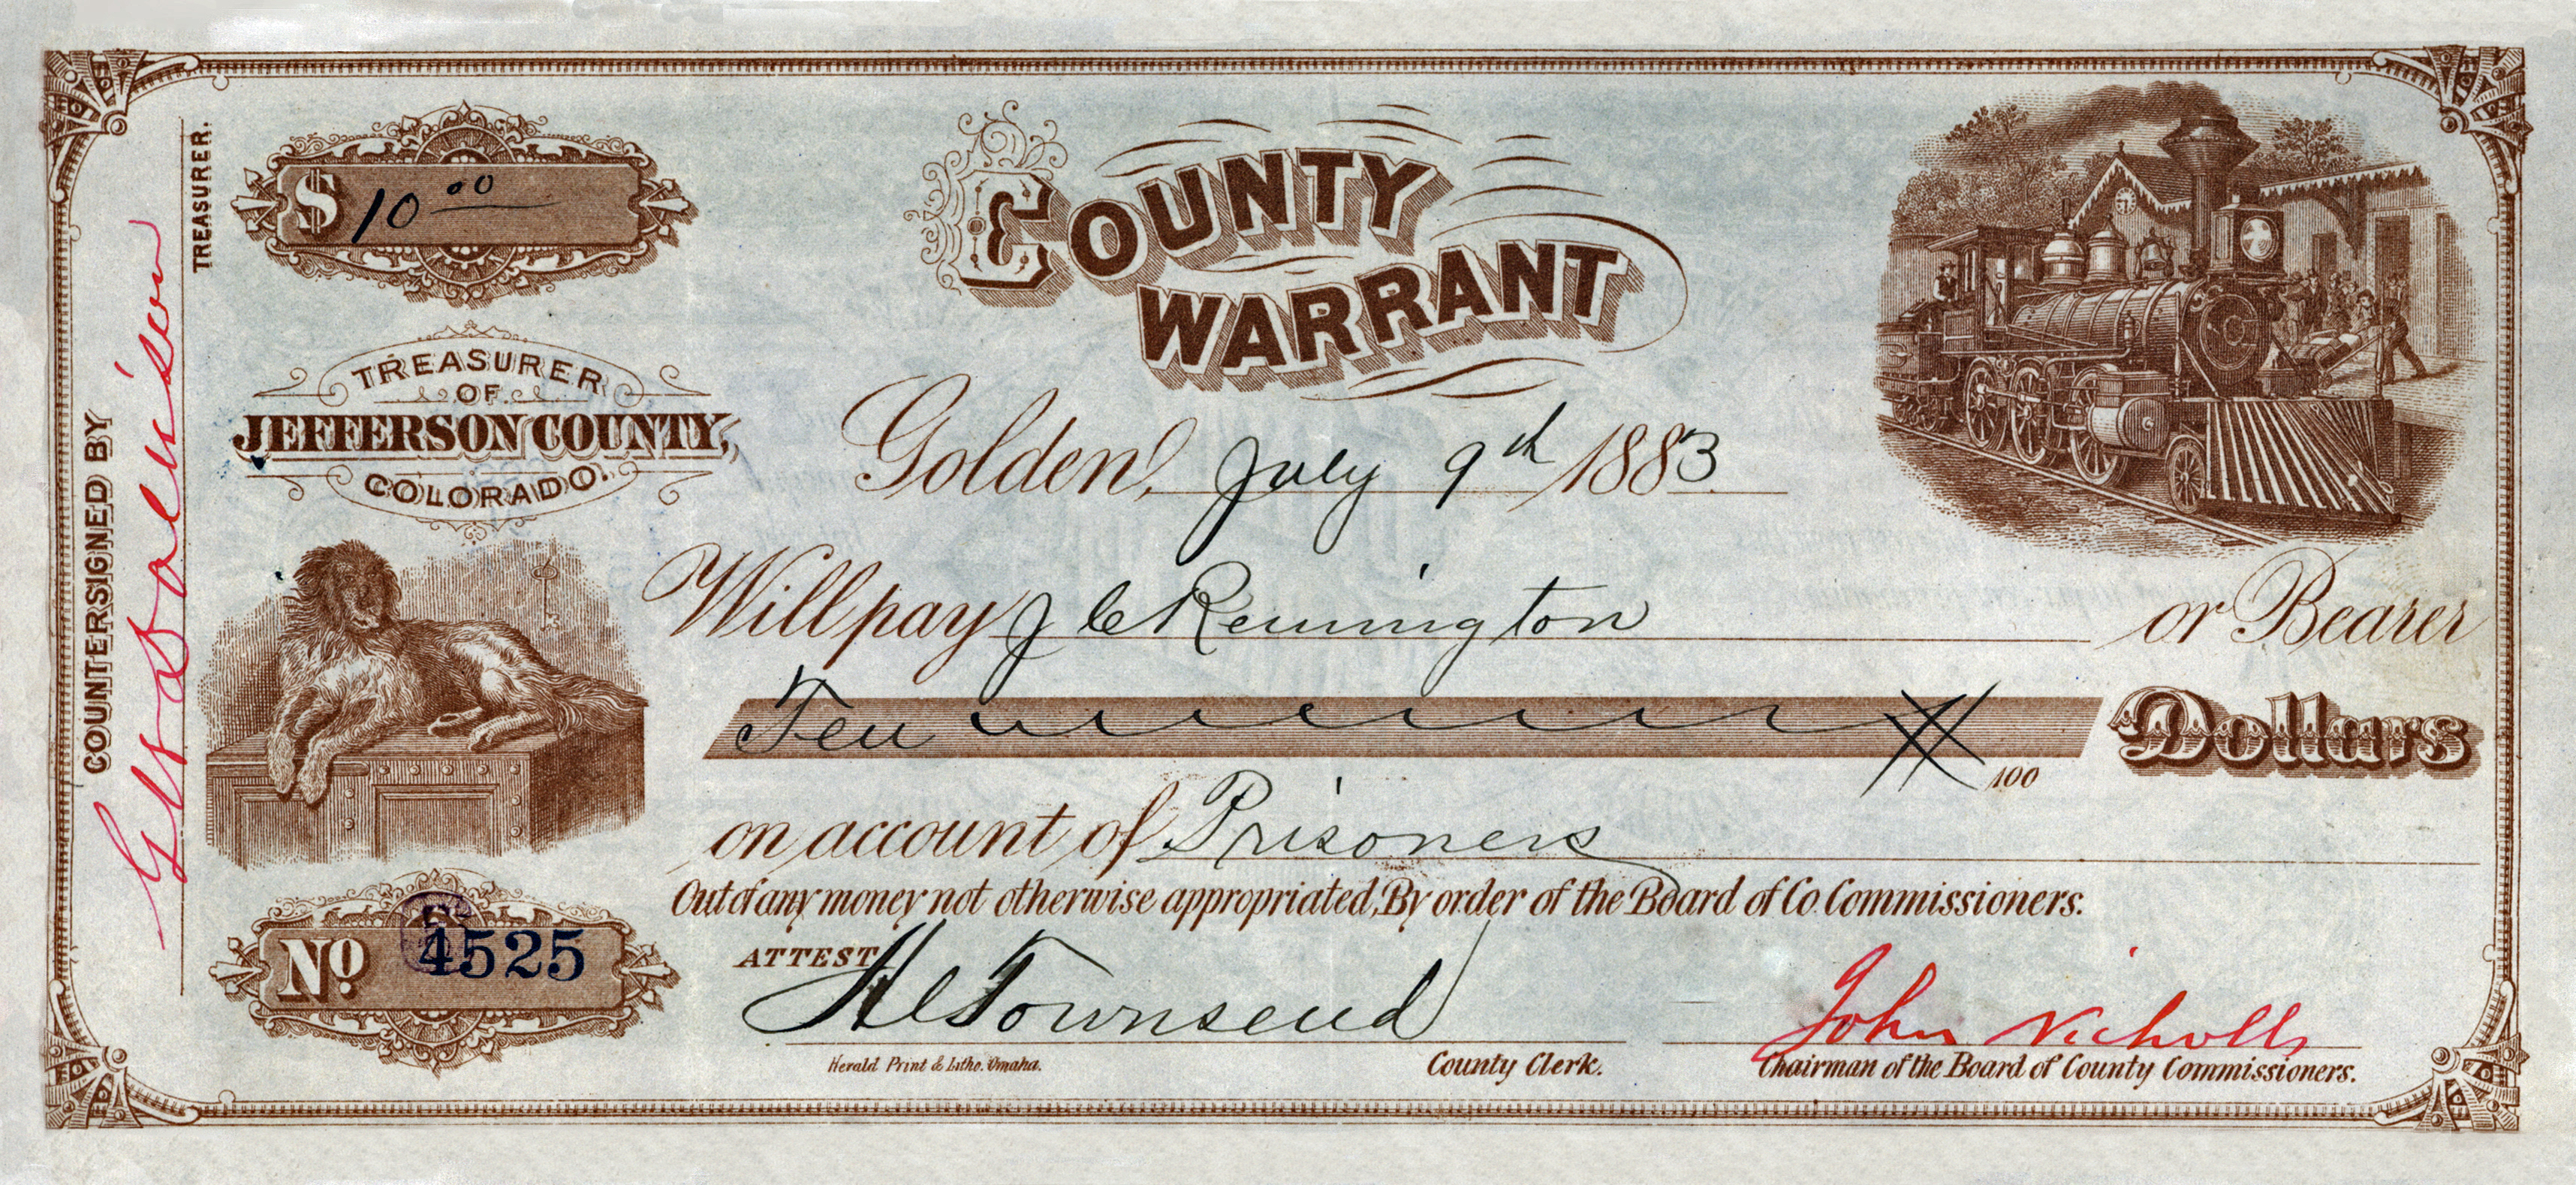 COUNTY
WARRANT
$ 10 00
TREASURER
OF
JEFFERSON COUNTY,
COLORADO.
Golden, July 9th 1883
Will pay J C Remington or Bearer
Ten /100 Dollars
on account of Prisoners
Out of any money not otherwise appropriated, By order of the Board of Co. Commissioners.
No. 4525
ATTEST
H C Townsend
John Nicholls
Herald Print & Litho. Omaha.
County Clerk.
Chairman of the Board of County Commissioners.
COUNTERSIGNED BY
TREASURER.